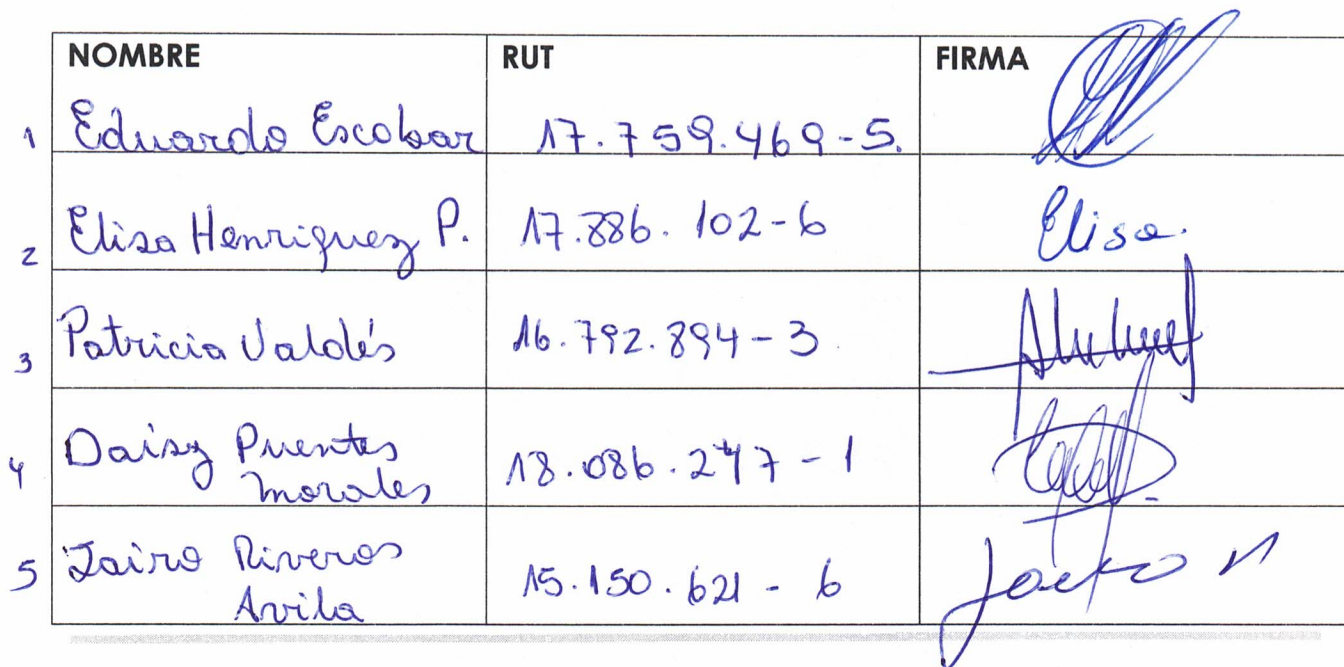 NOMBRE RUT FIRMA
1 Eduardo Escobar 17.759.469-5.
2 Elisa Henriquez P. 17.886.102-6 Elisa.
3 Patricia Valdés 16.792.894-3
4 Daisy Puentes
Morales 18.086.247-1
5 Jairo Riveros
Avila 15.150.621-6 Jairo